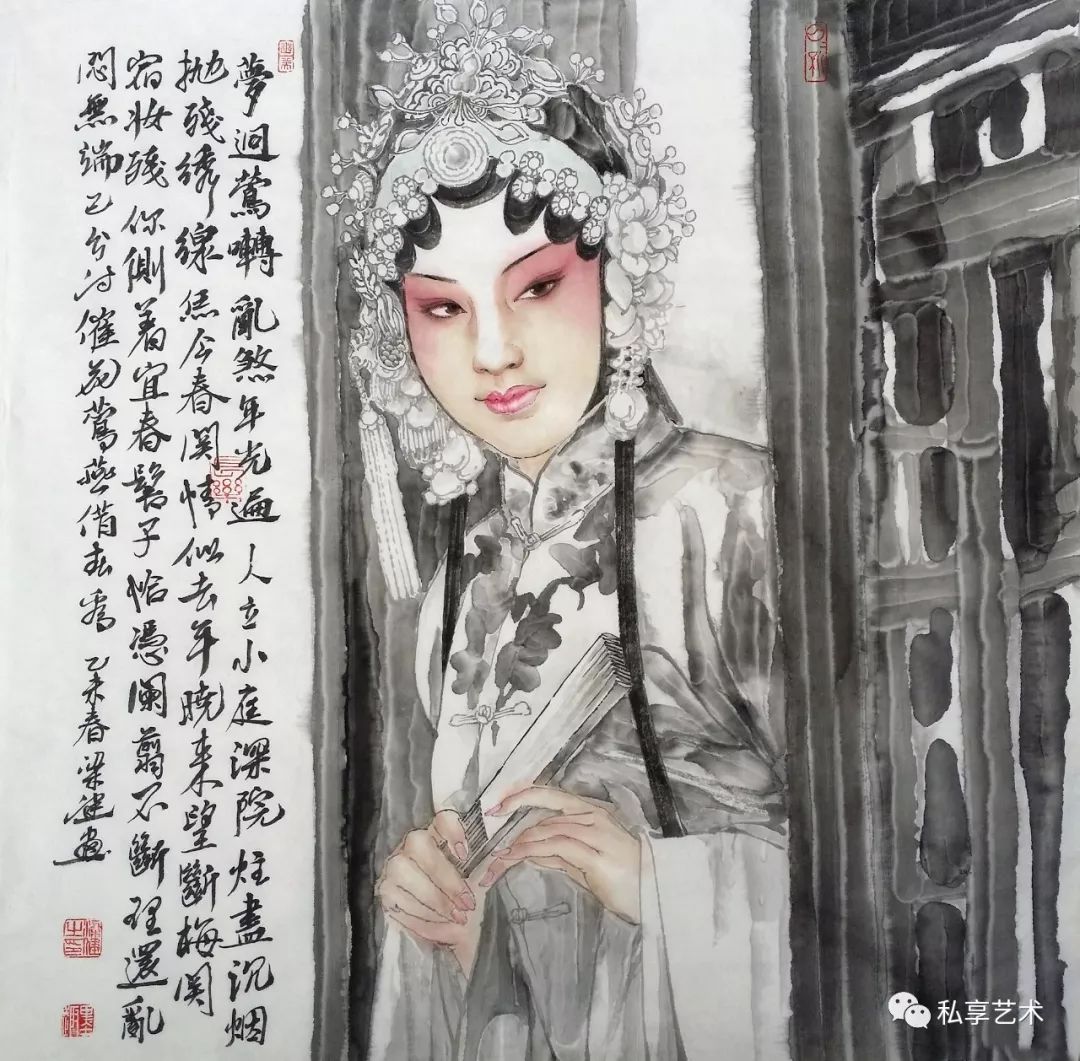 夢迴鶯囀亂煞年光遍人立小庭深院炷盡沉烟
抛殘繡線恁今春関情似去年曉来望斷梅関
宿妝殘你側着宜春髻子恰憑闌翦不斷理還亂
悶無端已分付催花鶯燕借春看乙未春梁建画
長樂
私享艺术